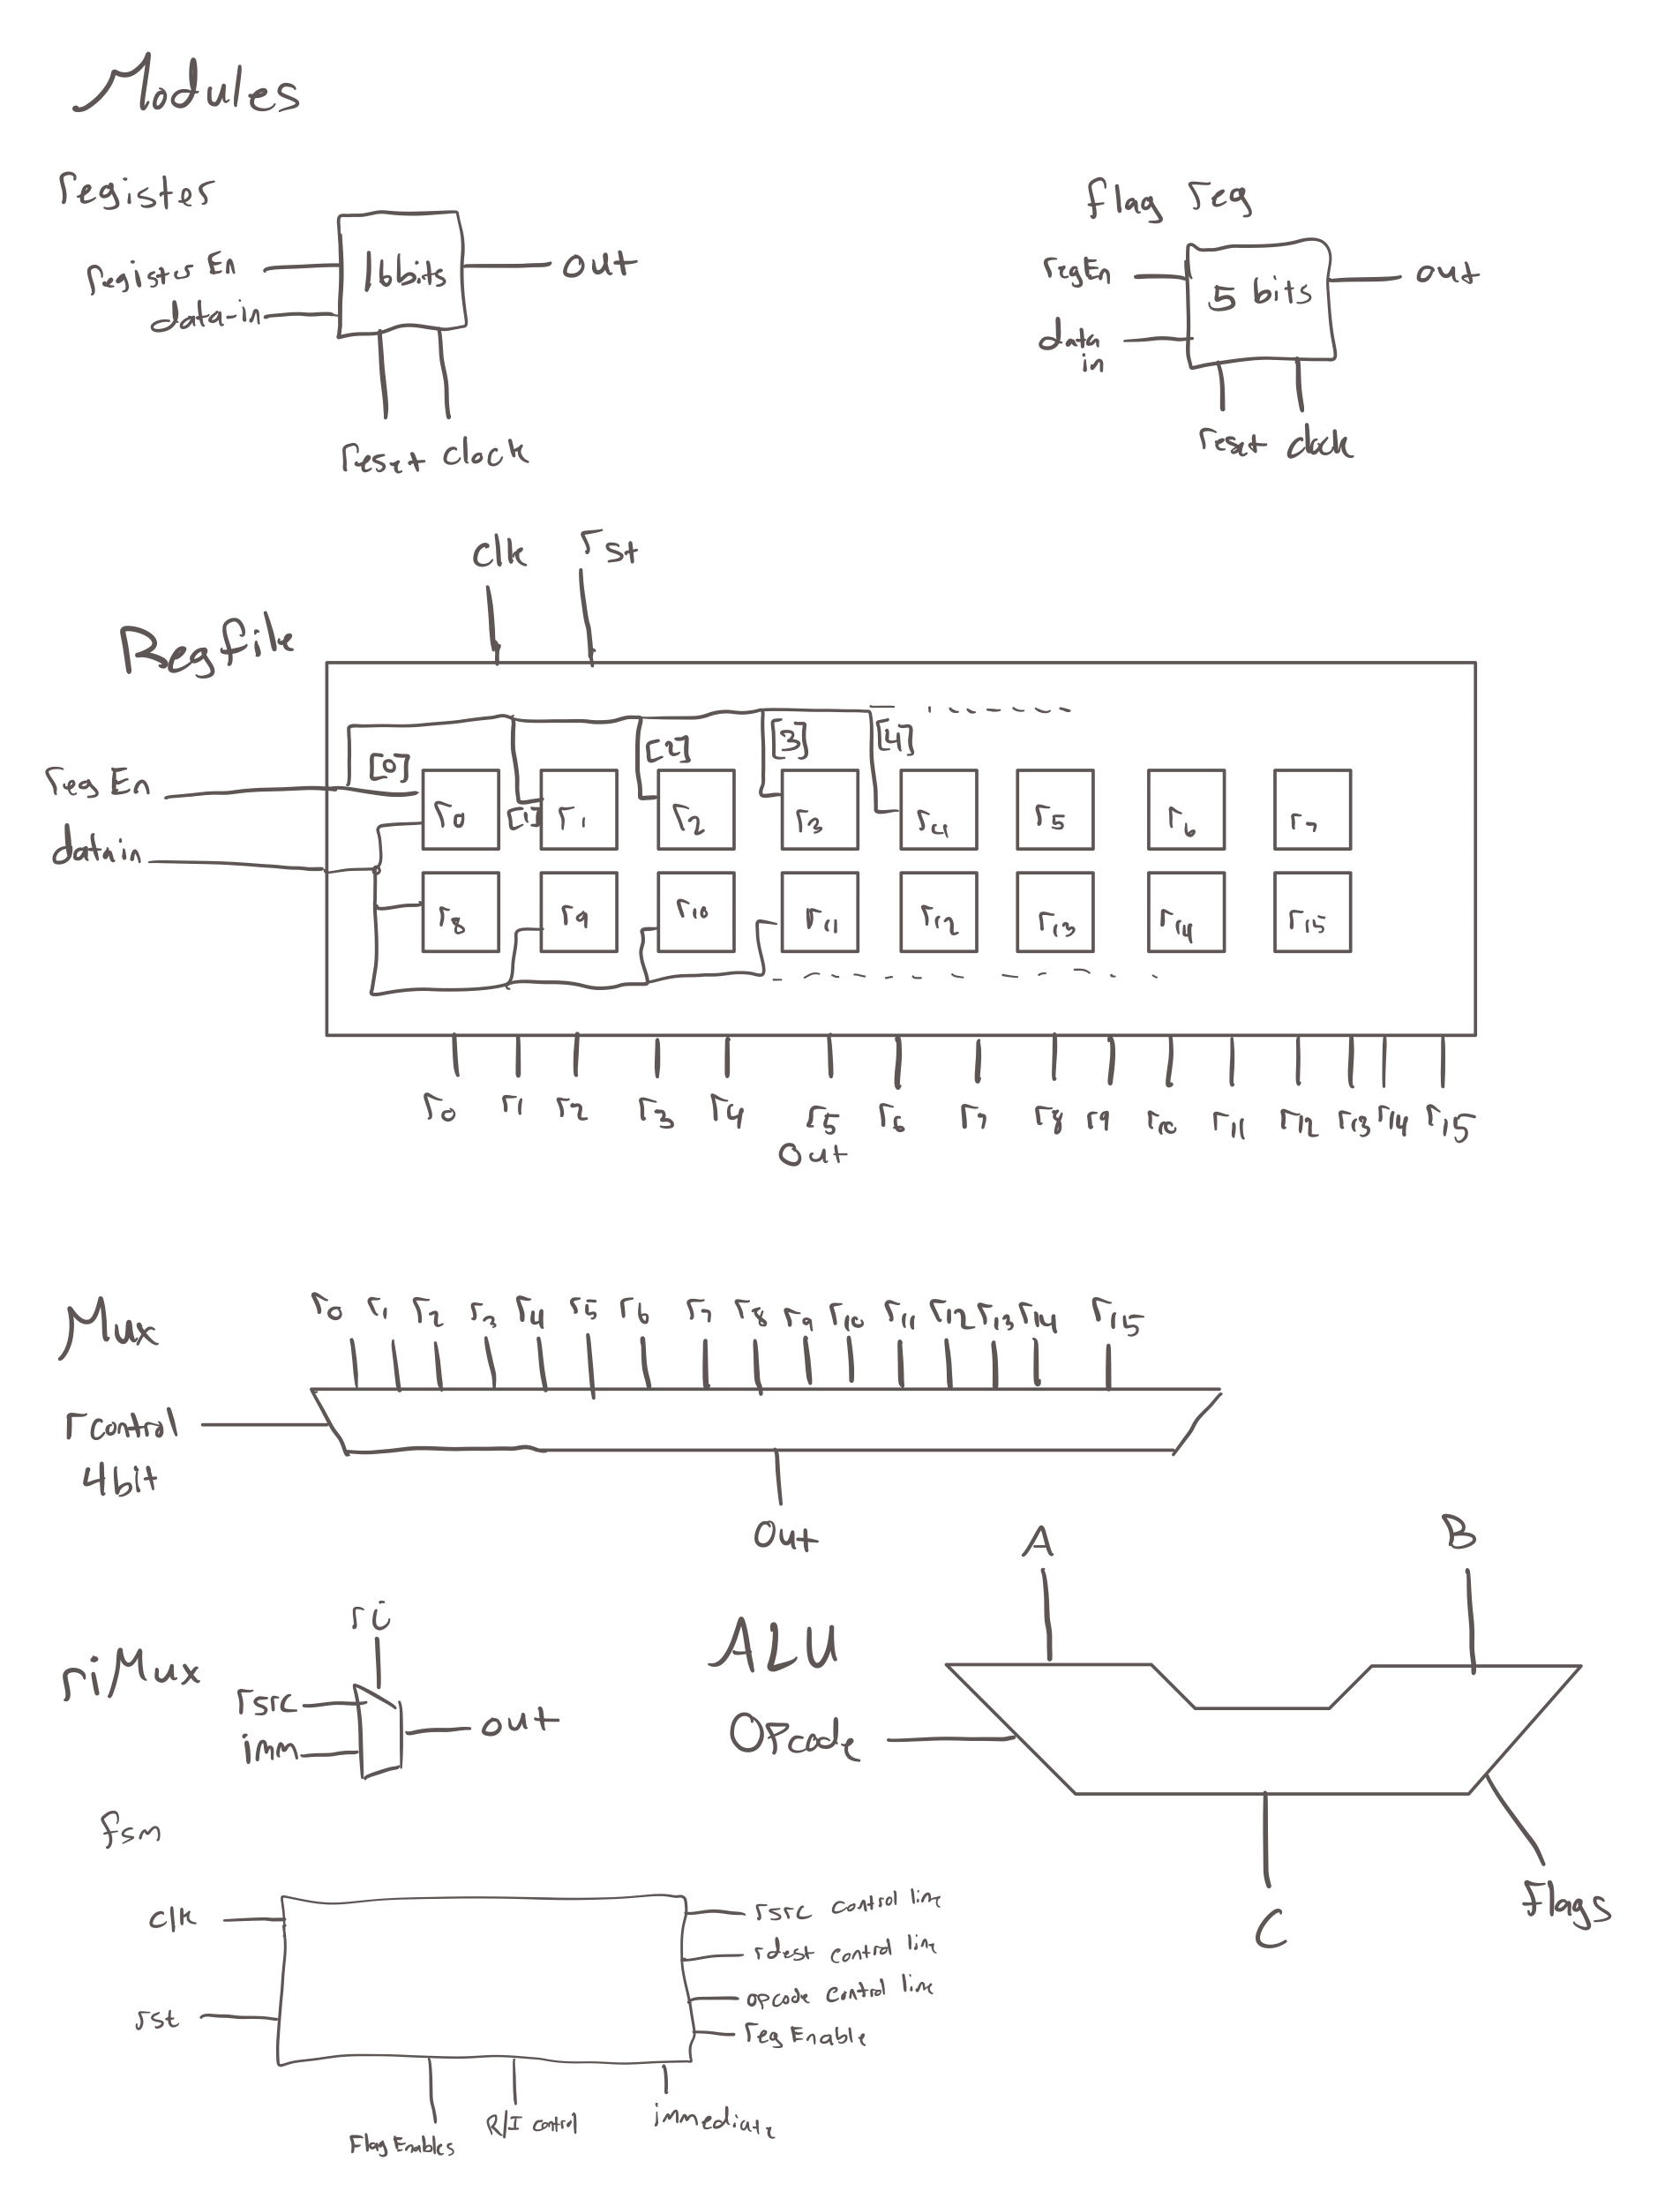 Modules
register
flag reg
register En
16bits
out
data-in
reset clock
regEn
5 bits
out
data
in
reset clock
clk rst
Regfile
reg En
data in
[0] [1] [2] [3] [4]
r0 r1 r2 r3 r4 r5 r6 r7
r8 r9 r10 r11 r12 r13 r14 r15
r0 r1 r2 r3 r4 r5 r6 r7 r8 r9 r10 r11 r12 r13 r14 r15
Out
Mux
r0 r1 r2 r3 r4 r5 r6 r7 r8 r9 r10 r11 r12 r13 r14 r15
rcontrol
4bit
Out
riMux
ri
rsrc
imm
out
ALU
A B
Opcode
C
flags
fsm
clk
rst
rsrc control line
rdest control line
opcode control line
reg Enable
Flag Enables
R/I control
immediate